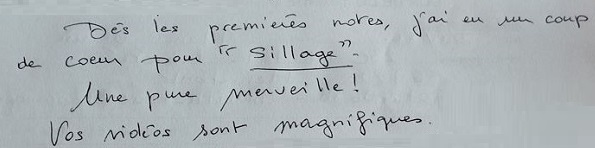 Dès les premières notes, j'ai eu un coup
de coeur pour "Sillage".
Une pure merveille !
Vos vidéos sont magnifiques.